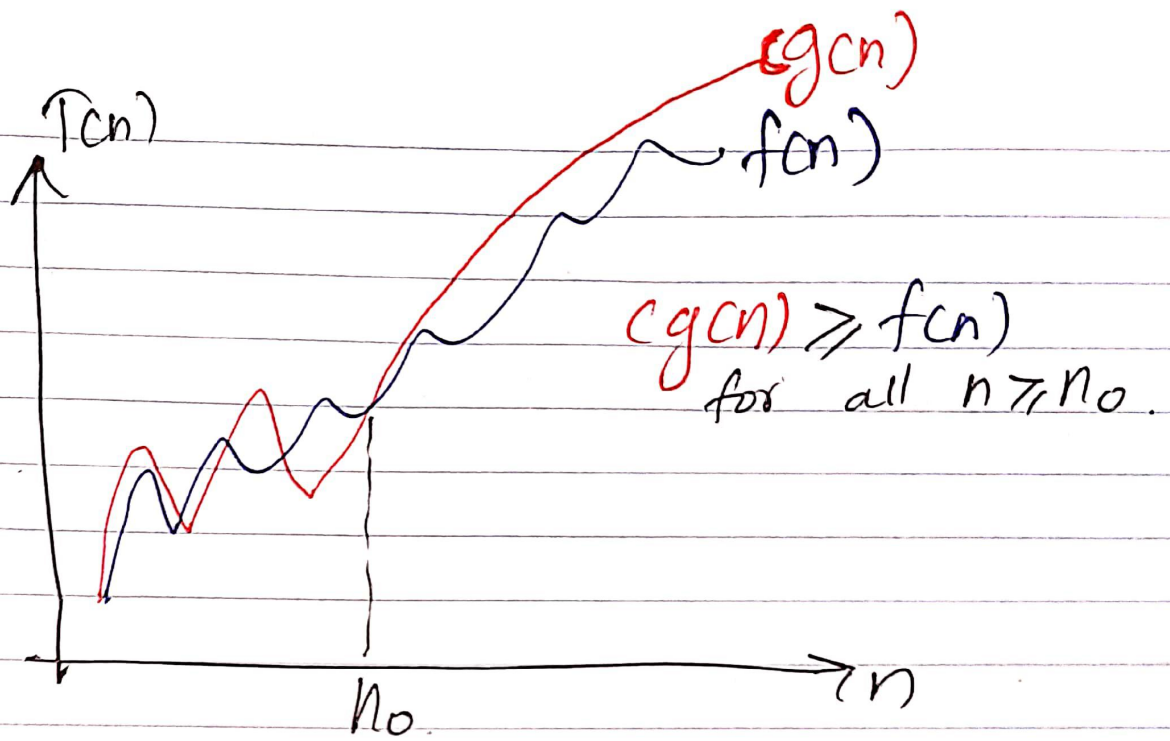 cg(n)
T(n)
f(n)
cg(n) ⩾ f(n)
for all n ⩾ n₀.
n
n₀.